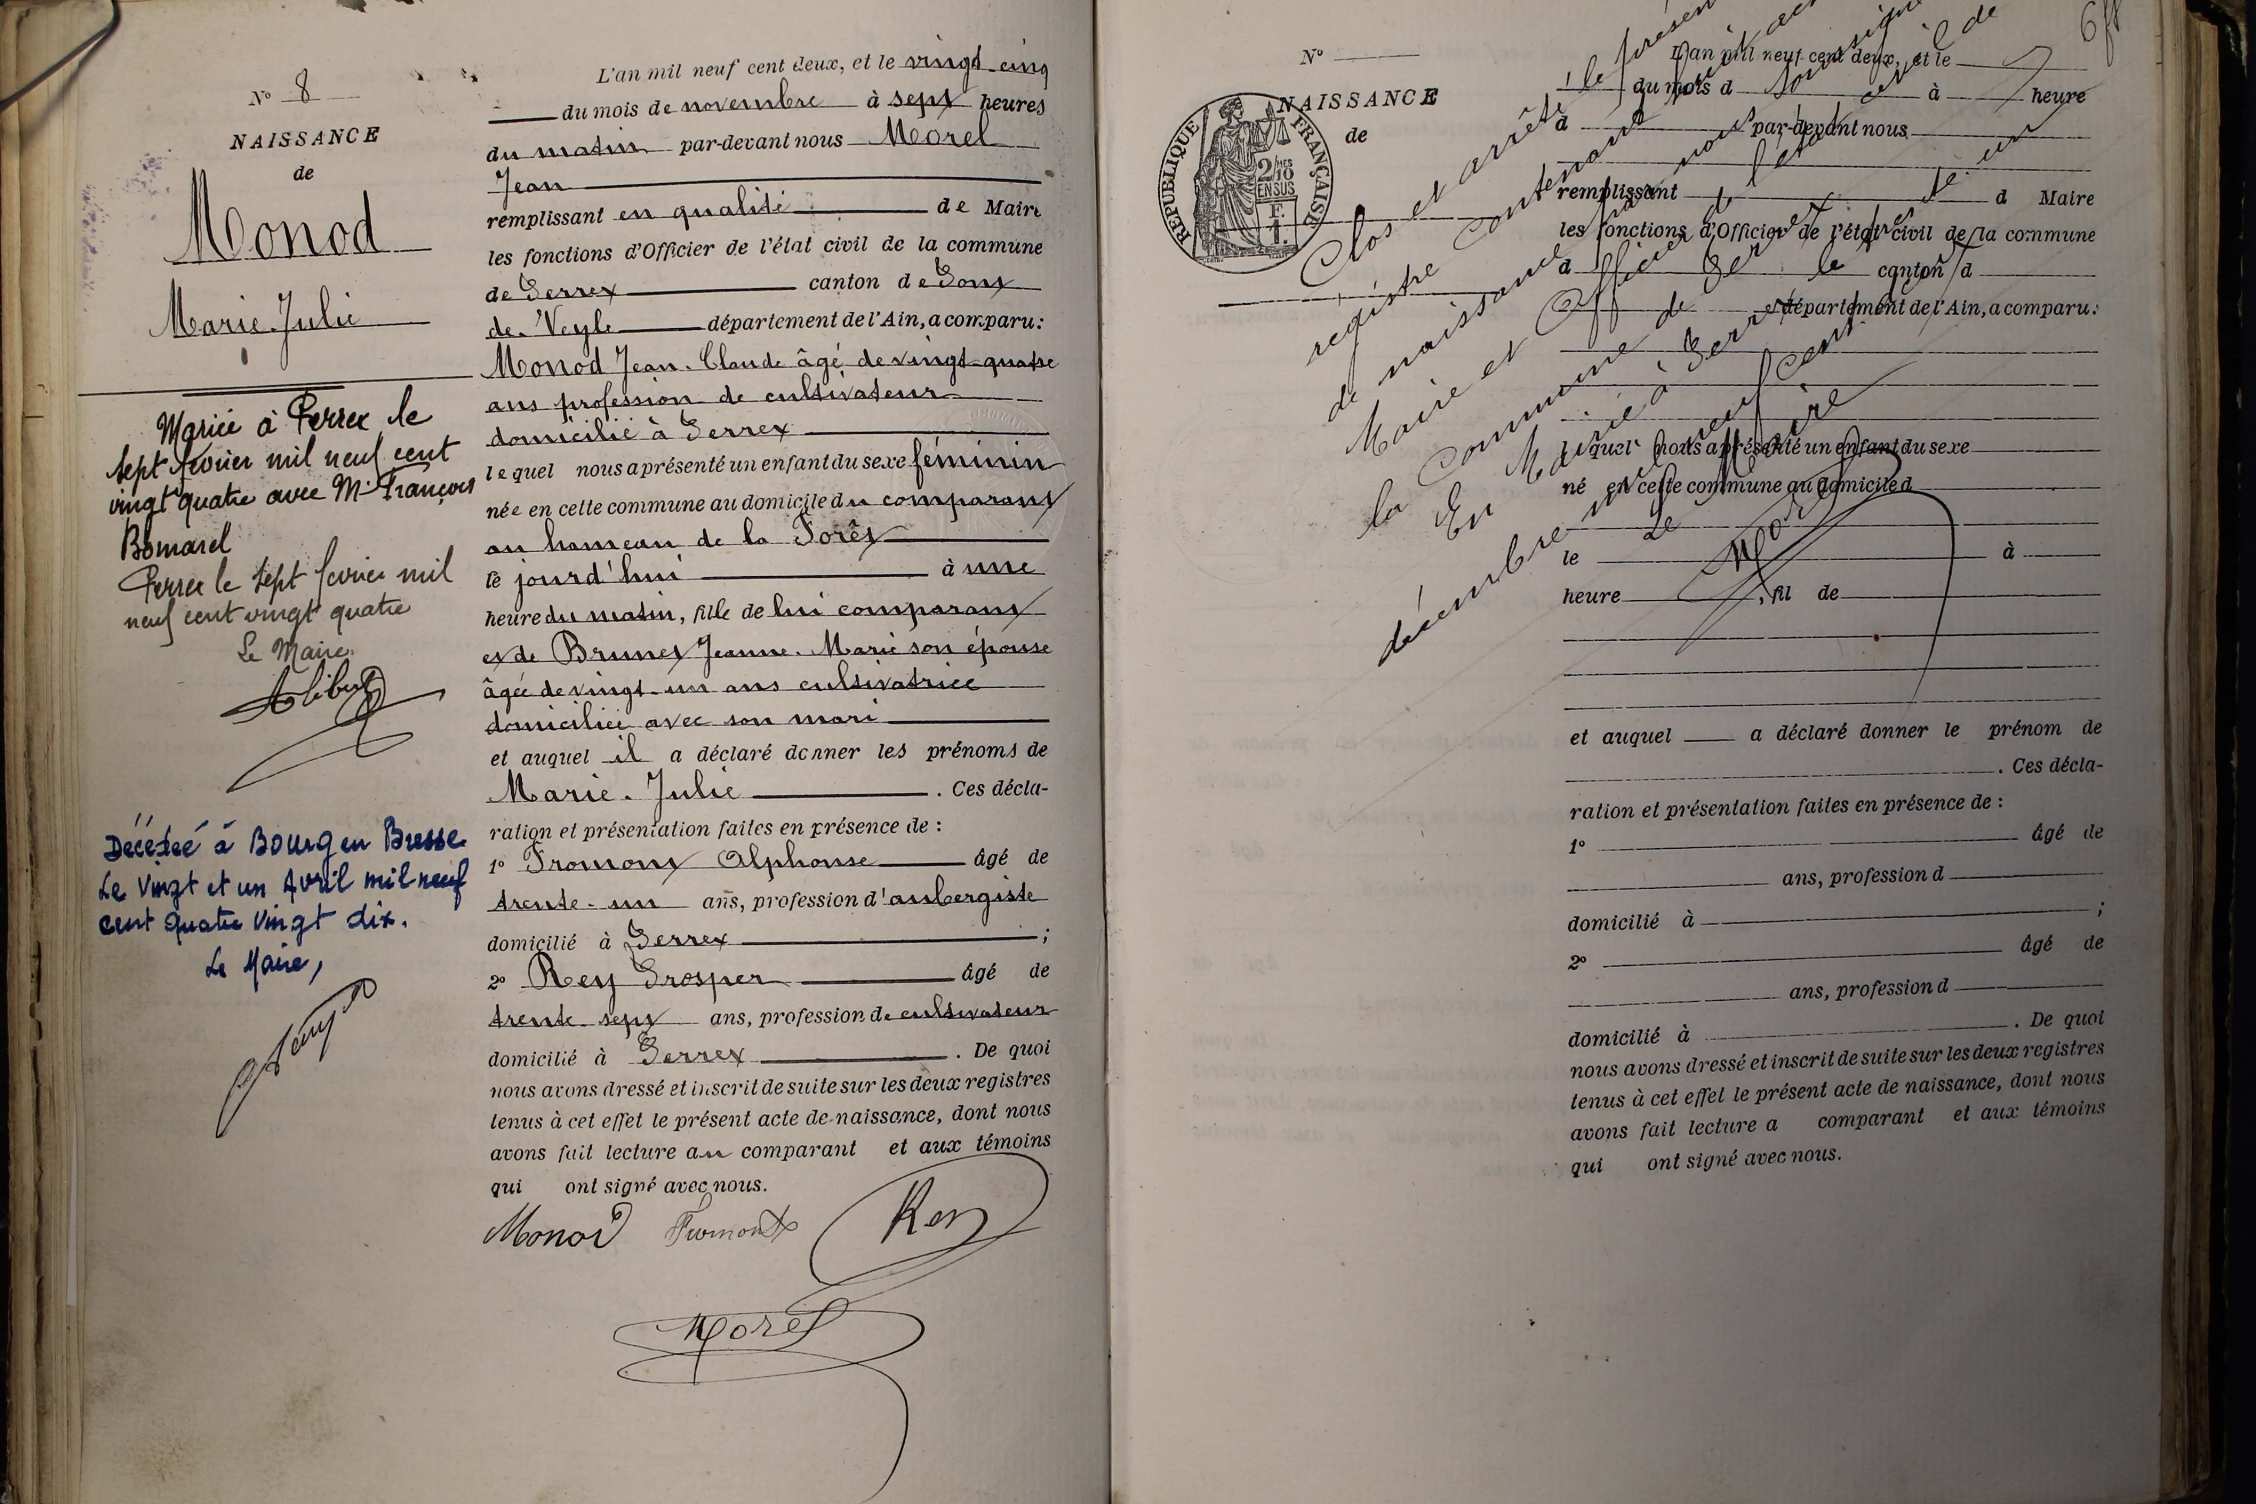 N° 8
NAISSANCE
de
Monod
Marie-Julie
Mariée à Perrex le
sept février mil neuf cent
vingt quatre avec Mr François
Bomarel
Perrex le sept février mil
neuf cent vingt quatre
Le Maire
Décédée à Bourg en Bresse
Le Vingt et un Avril mil neuf
cent quatre vingt dix.
Le Maire,
L'an mil neuf cent deux, et le vingt-cinq
du mois de novembre à sept heures
du matin par-devant nous Morel
Jean
remplissant en qualité de Maire
les fonctions d'Officier de l'état civil de la commune
de Perrex canton de Pont
de-Veyle département de l'Ain, a comparu:
Monod Jean-Claude âgé de vingt-quatre
ans profession de cultivateur
domicilié à Perrex
lequel nous a présenté un enfant du sexe féminin
née en cette commune au domicile du comparant
au hameau de la Forêt
le jourd'hui à une
heure du matin, fille de lui comparant
et de Brunet Jeanne-Marie son épouse
âgée de vingt-un ans cultivatrice
domiciliée avec son mari
et auquel il a déclaré donner les prénoms de
Marie-Julie . Ces décla-
ration et présentation faites en présence de :
1° Fromont Alphonse âgé de
trente-un ans, profession d'aubergiste
domicilié à Perrex ;
2° Rey Prosper âgé de
trente-sept ans, profession de cultivateur
domicilié à Perrex . De quoi
nous avons dressé et inscrit de suite sur les deux registres
tenus à cet effet le présent acte de naissance, dont nous
avons fait lecture au comparant et aux témoins
qui ont signé avec nous.
Monod Fromont Rey
Morel
N°
NAISSANCE
de
REPUBLIQUE FRANÇAISE
2/10 MES
EN SUS
F.
1.
L'an mil neuf cent deux, et le
du mois d à heure
d par-devant nous
remplissant d Maire
les fonctions d'Officier de l'état civil de la commune
d canton d
département de l'Ain, a comparu:
quel nous a présenté un enfant du sexe
né en cette commune au domicile d
le à
heure , fil de
et auquel a déclaré donner le prénom de
. Ces décla-
ration et présentation faites en présence de :
1° âgé de
ans, profession d
domicilié à ;
2° âgé de
ans, profession d
domicilié à . De quoi
nous avons dressé et inscrit de suite sur les deux registres
tenus à cet effet le présent acte de naissance, dont nous
avons fait lecture a comparant et aux témoins
qui ont signé avec nous.
Clos et arrêté le présent
registre contenant huit actes
de naissance par nous soussigné
Maire et Officier de l'état civil de
la commune de Perrex
En Mairie à Perrex le trente un
décembre mil neuf cent deux
Le Maire
Morel